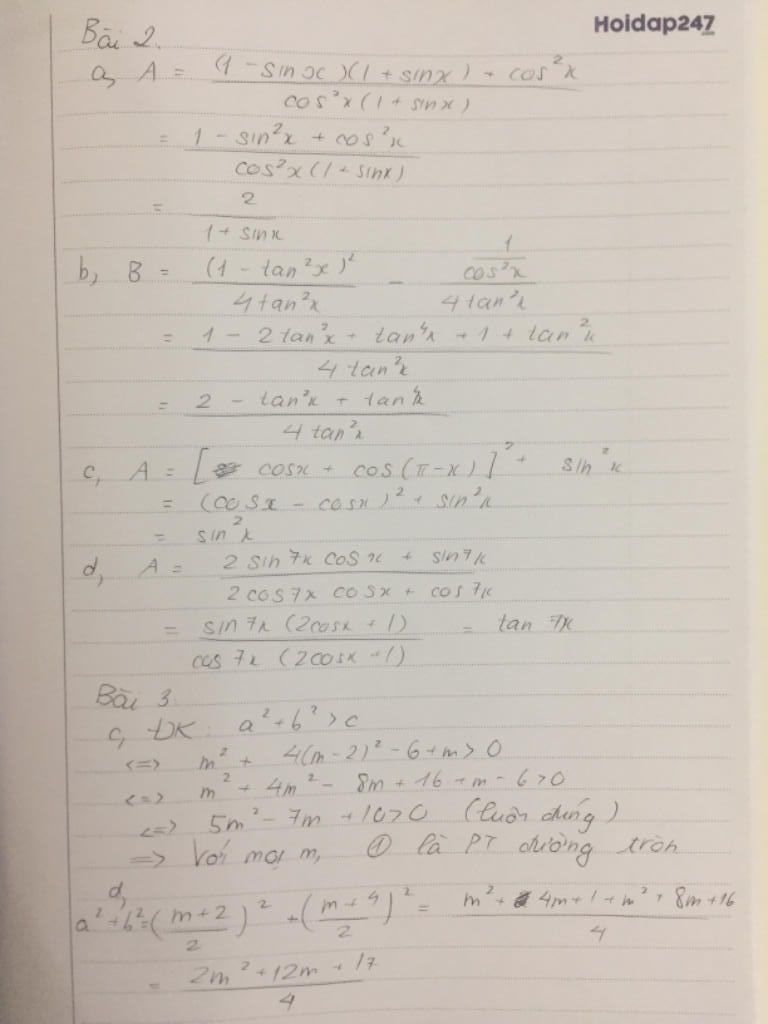 Hoidap247
Bài 2.
a, A = ((1 - sinx)(1 + sinx) + cos²x) / (cos²x(1 + sinx))
= (1 - sin²x + cos²x) / (cos²x(1 + sinx))
= 2 / (1 + sinx)
b, B = (1 - tan²x)² / (4tan²x) - (1 / cos²x) / (4tan²x)
= (1 - 2tan²x + tan⁴x + 1 + tan²x) / (4tan²x)
= (2 - tan²x + tan⁴x) / (4tan²x)
c, A = [cosx + cos(π-x)]² + sin²x
= (cosx - cosx)² + sin²x
= sin²x
d, A = (2sin7x cosx + sin7x) / (2cos7x cosx + cos7x)
= (sin7x(2cosx + 1)) / (cos7x(2cosx + 1)) = tan 7x
Bài 3.
c, ĐK: a² + b² > c
<=> m² + 4(m-2)² - 6 + m > 0
<=> m² + 4m² - 8m + 16 + m - 6 > 0
<=> 5m² - 7m + 10 > 0 (luôn đúng)
=> Với mọi m, ① là PT đường tròn
d,
a² + b² = ((m+2)/2)² + ((m+4)/2)² = (m² + 4m + 1 + m² + 8m + 16) / 4
= (2m² + 12m + 17) / 4